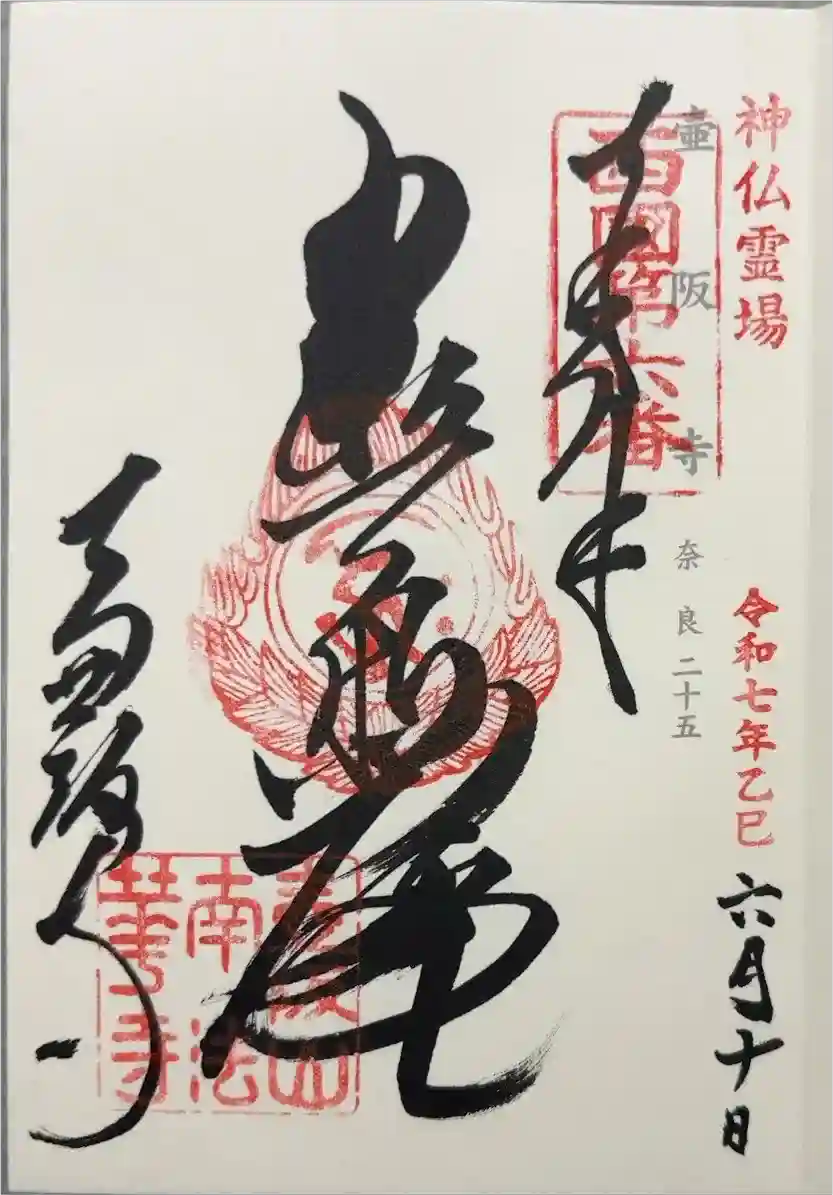 神仏霊場
令和七年乙巳
六月十日
壷阪寺
奈良二十五
西國第六番
奉拝
壷阪寺
壷阪山
南法
華寺